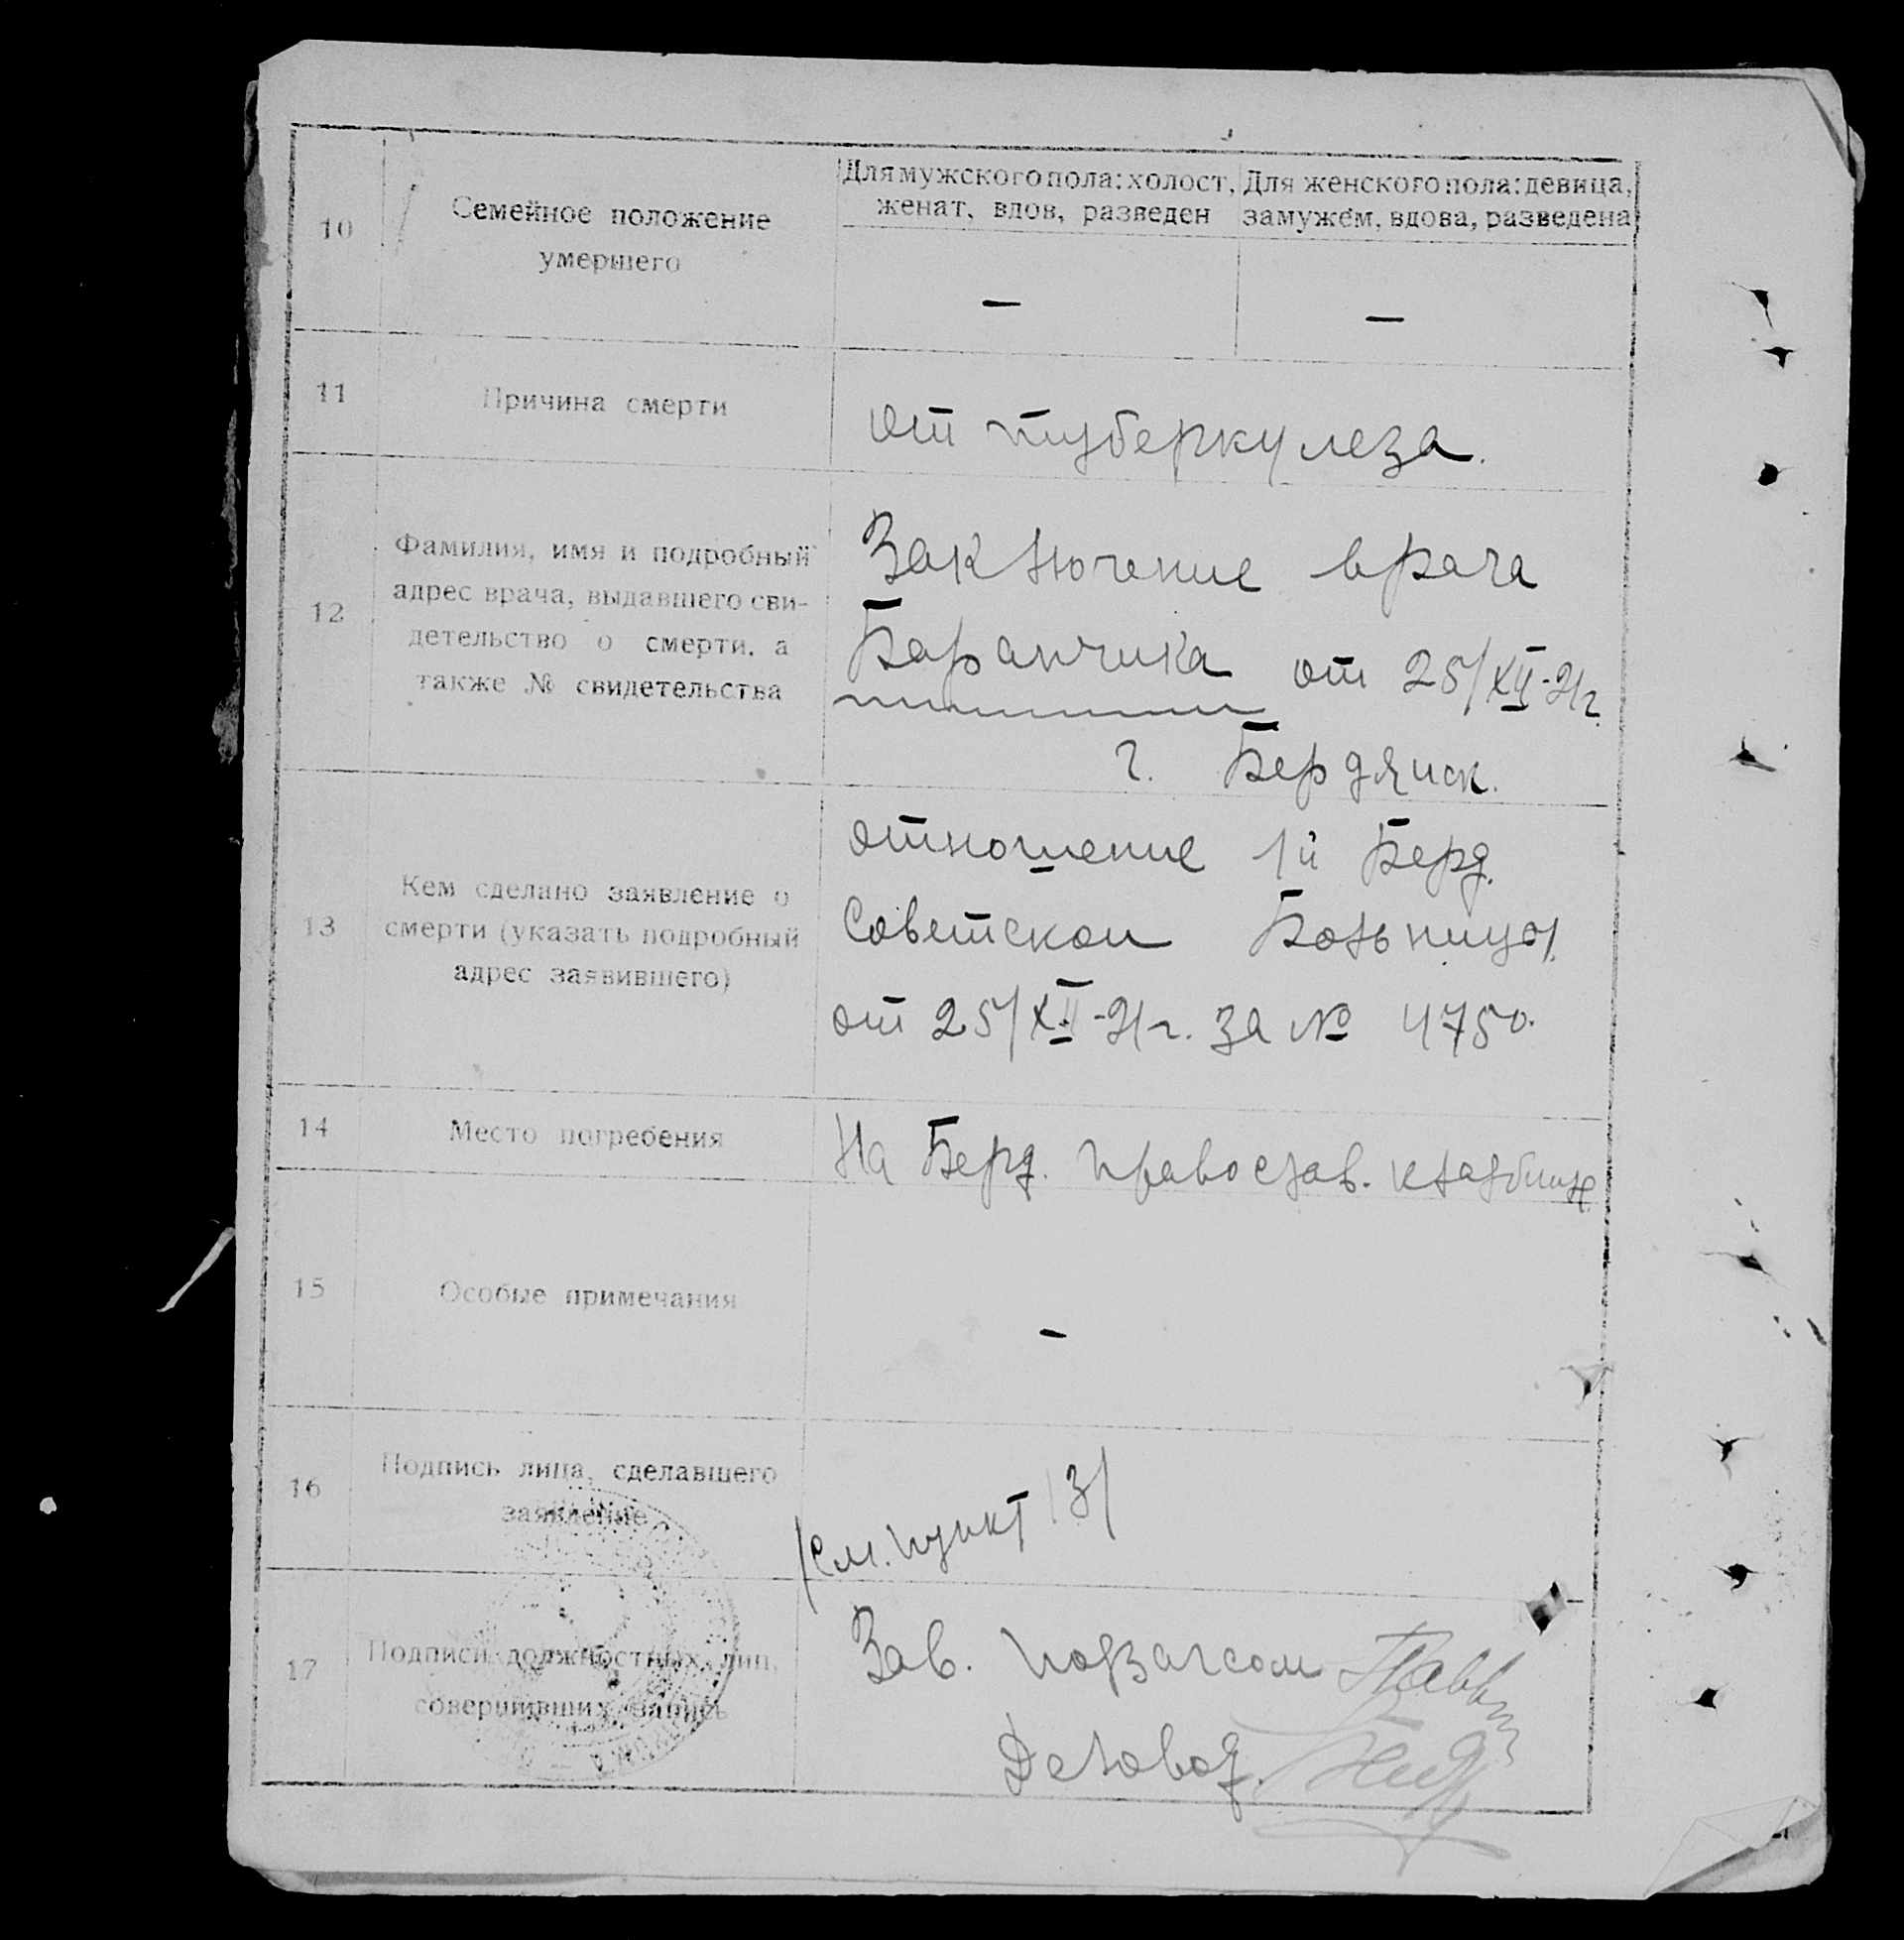 10
Семейное положение
умершего
Для мужского пола: холост,
женат, вдов, разведен
Для женского пола: девица,
замужем, вдова, разведена
—
—
11
Причина смерти
от туберкулеза.
12
Фамилия, имя и подробный
адрес врача, выдавшего сви-
детельство о смерти, а
также № свидетельства
Заключение врача
Баранчика от 25/XII-21г.
г. Бердянск.
13
Кем сделано заявление о
смерти (указать подробный
адрес заявившего)
отношение 1й Берд.
Советской Больницы
от 25/XII-21г. за № 4750.
14
Место погребения
На Берд. православ. кладбище
15
Особые примечания
-
16
Подпись лица, сделавшего
заявление
/см. пункт 13/
17
Подписи должностных лиц,
совершивших запись
Зав. подзагсом
Деловод.